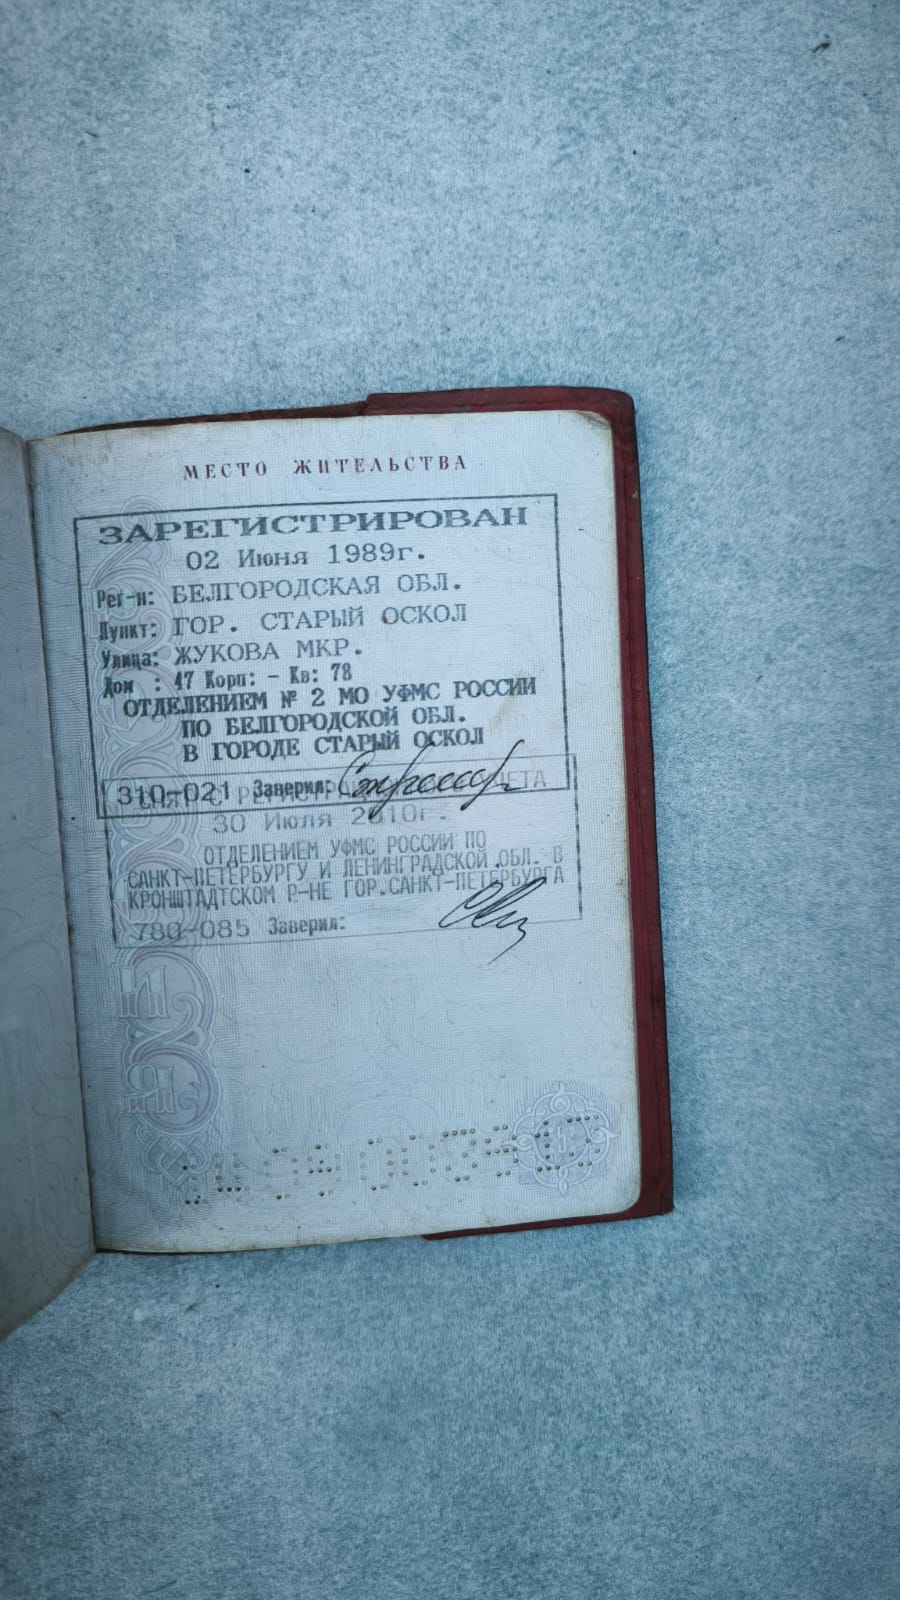 МЕСТО ЖИТЕЛЬСТВА
ЗАРЕГИСТРИРОВАН
02 Июня 1989г.
Рег-н: БЕЛГОРОДСКАЯ ОБЛ.
Пункт: ГОР. СТАРЫЙ ОСКОЛ
Улица: ЖУКОВА МКР.
Дом : 47 Корп: - Кв: 78
ОТДЕЛЕНИЕМ № 2 МО УФМС РОССИИ
ПО БЕЛГОРОДСКОЙ ОБЛ.
В ГОРОДЕ СТАРЫЙ ОСКОЛ
310-021 Заверил:
30 Июля 2010г.
ОТДЕЛЕНИЕМ УФМС РОССИИ ПО
САНКТ-ПЕТЕРБУРГУ И ЛЕНИНГРАДСКОЙ ОБЛ. В
КРОНШТАДТСКОМ Р-НЕ ГОР.САНКТ-ПЕТЕРБУРГА
780-085 Заверил: